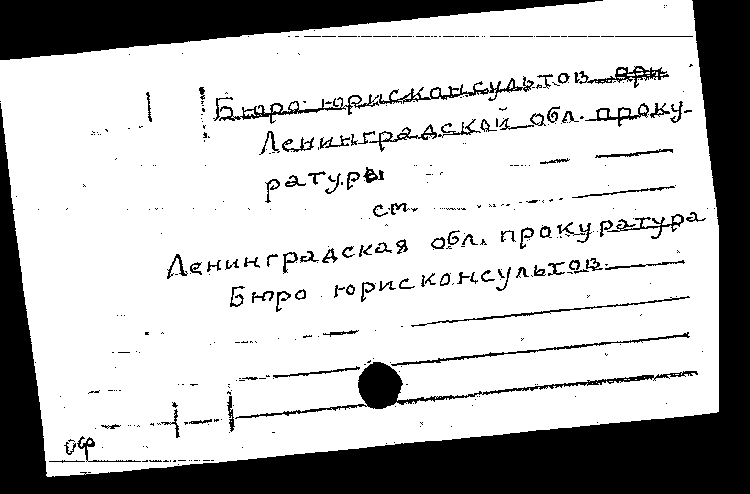 Бюро юрисконсультов при
Ленинградской обл. проку-
ратуры
см.
Ленинградская обл. прокуратура
Бюро юрисконсультов.
оф